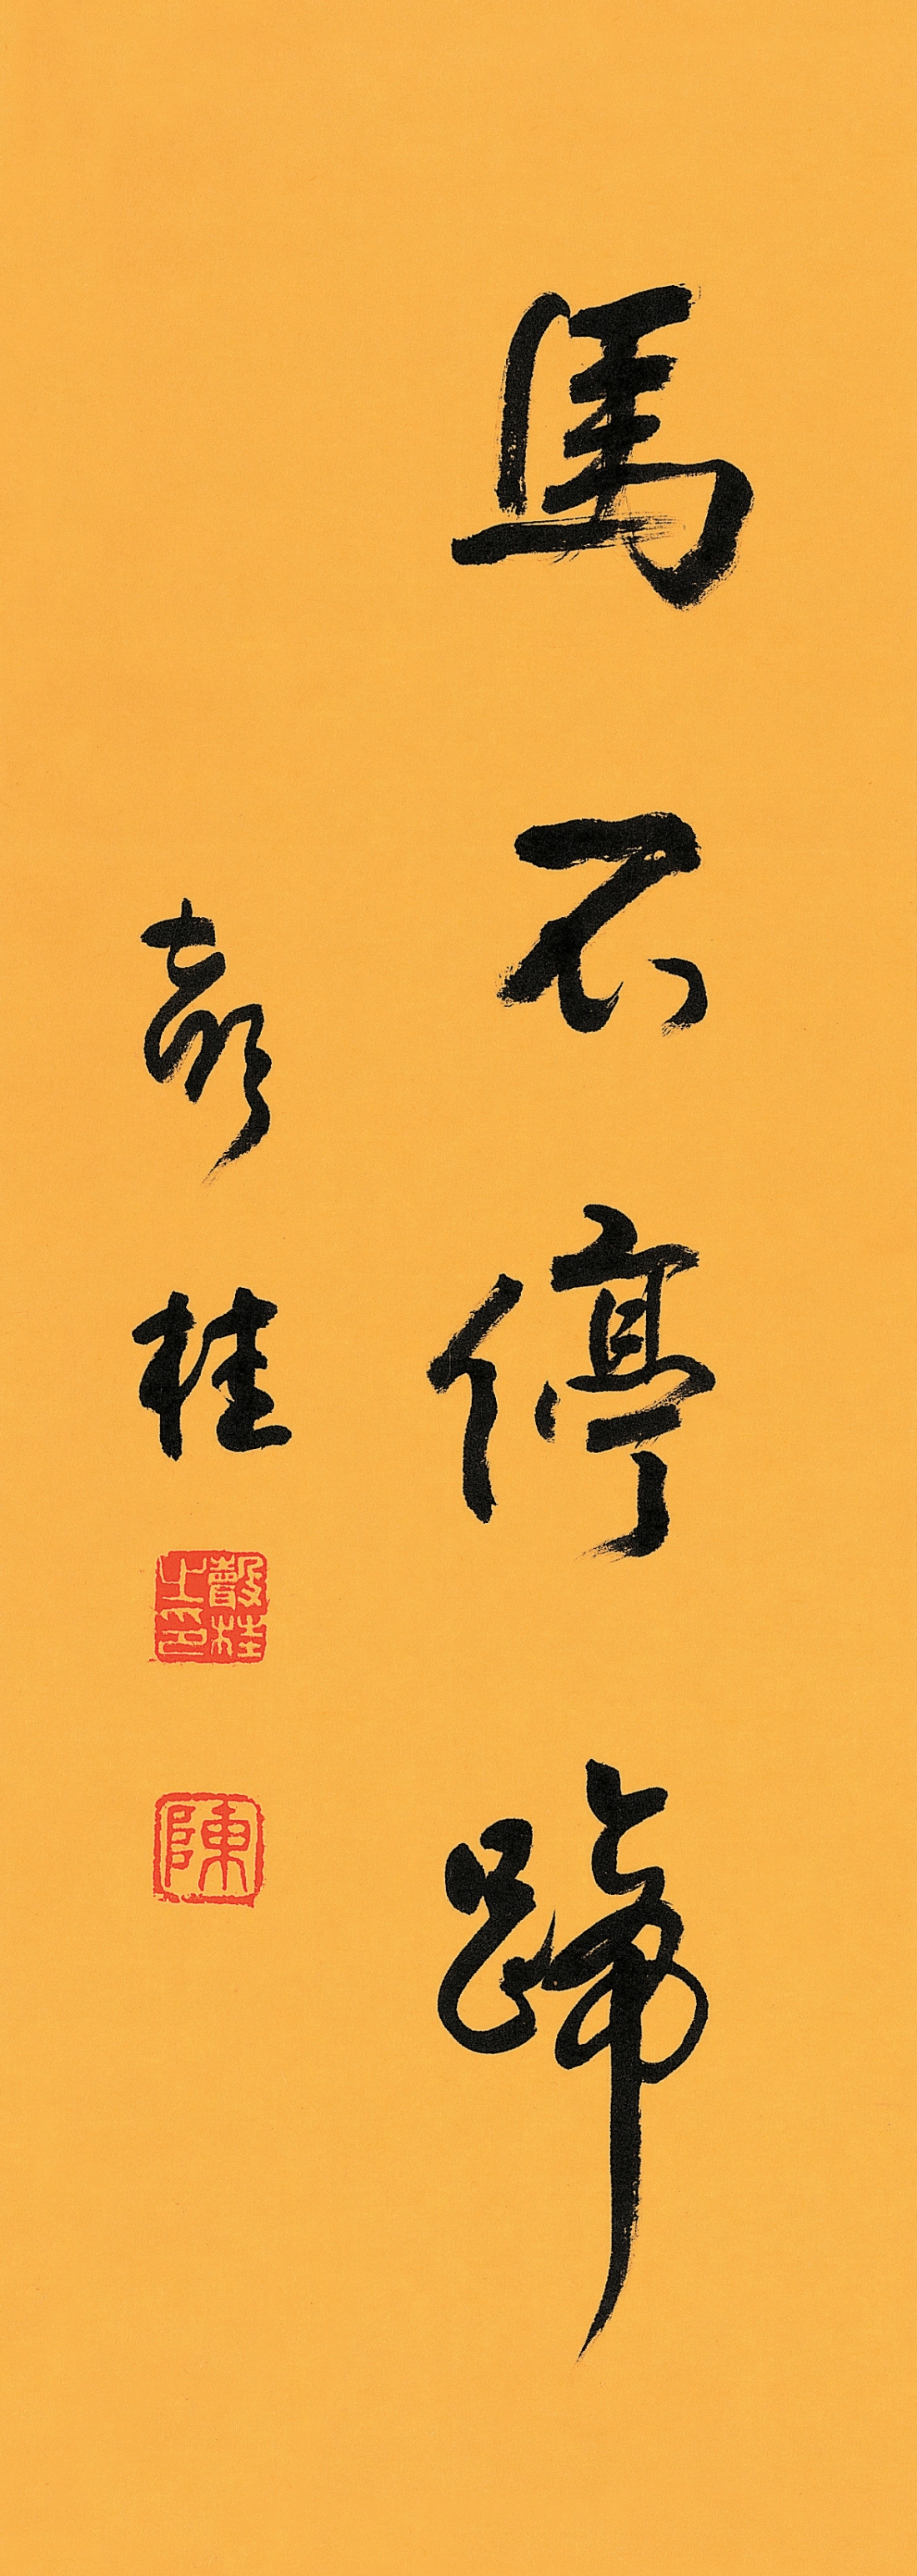 馬不停蹄
聲桂
聲桂之印
陳